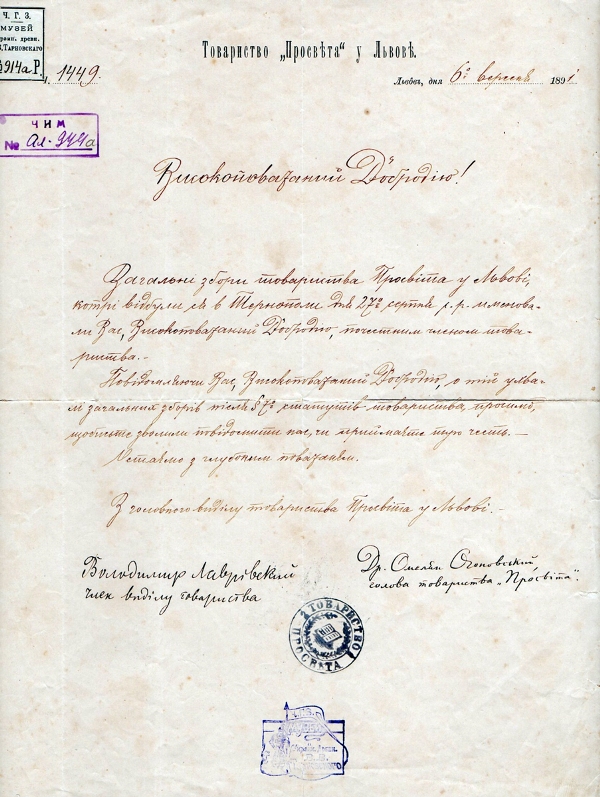 Ч. Г. З.
МУЗЕЙ
В. Тарновского
914а Р.
Товариство „Просвѣта“ у Львовѣ.
ч. 1449.
Львôв, дня 6го вересня 1891
ЧИМ
№ Ал-944а
Високоповажаний Добродію!
Загальні збори товариства Просвіта у Львові,
котрі відбули ся в Тернополи дня 27го серпня с. р. іменова-
ли Вас, Високоповажаний Добродію, почестним членом това-
риства.-
Повідомляючи Вас, Високоповажаний Добродію, о тій ухва-
лі загальних зборів після §7го статутів товариства, просимо,
щобисте зволили повідомити нас, чи приймаєте тую честь.-
Остаємо з глубоким поважанєм.
З головного виділу товариства Просвіта у Львові.-
Володимир Лаврівский
член виділу товариства
Др. Омелян Огоновский,
голова товариства „Просвіта“.
ТОВАРИСТВО ПРОСВѢТА